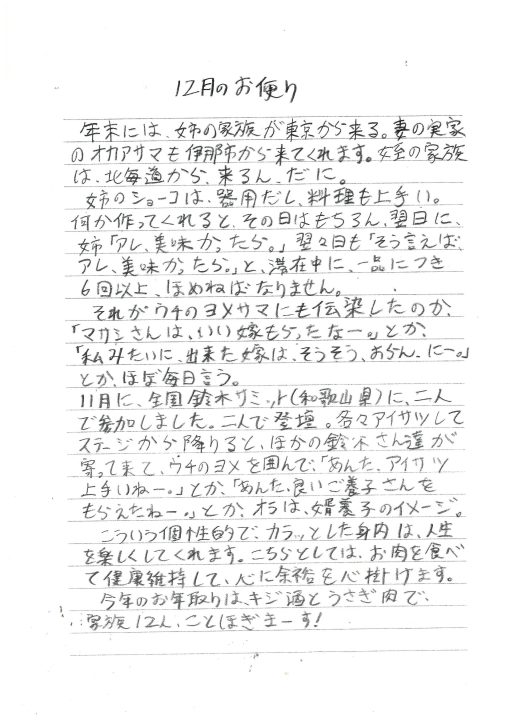 12月のお便り
年末には、姉の家族が東京から来る。妻の実家
のオカアサマも伊那市から来てくれます。姪の家族
は、北海道から、来るん、だに。
姉のショーコは、器用だし、料理も上手い。
何か作ってくれると、その日はもちろん、翌日に、
姉「アレ、美味かったら。」翌々日も「そう言えば、
アレ、美味かったら。」と、滞在中に、一品につき
6回以上、ほめねばなりません。
それがウチのヨメサマにも伝染したのか、
「マサシさんは、いい嫁もらったなー。」とか、
「私みたいに、出来た嫁は、そうそう、おらん、にー。」
とか、ほぼ毎日言う。
11月に、全国鈴木サミット(和歌山県)に、二人
で参加しました。二人で登壇。各々アイサツして
ステージから降りると、ほかの鈴木さん達が
寄って来て、ウチのヨメを囲んで、「あんた、アイサツ
上手いねー。」とか、「あんた、良いご養子さんを
もらえたねー。」とか、オラは、婿養子のイメージ。
こういう個性的で、カラッとした身内は、人生
を楽しくしてくれます。こちらとしては、お肉を食べ
て健康維持して、心に余裕を心掛けます。
今年のお年取りは、キジ酒とうさぎ肉で、
家族12人、ことほぎまーす!